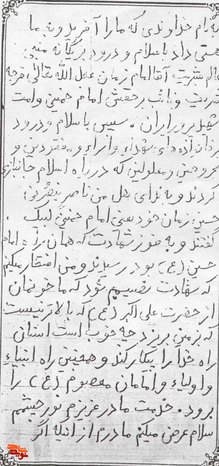 بنام خداوندی که ما را آفرید و به ما
هستی داد با سلام و درود بر یگانه منجی
عالم بشریت آقا امام زمان عجل الله تعالی فرجه
و نائب بر حقش امام خمینی و امت
شهید پرور ایران. سپس با سلام و درود
خانواده های شهدا و اسرا و مفقودین و
مجروحین و معلولین که در راه اسلام جانبازی
کردند و به ندای هل من ناصر ینصرنی
حسین زمان خود یعنی امام خمینی لبیک
گفتند و به فوز شهادت که همان راه امام
حسین (ع) بود رسیدند و من افتخار میکنم
که شهادت نصیبم شود که ما خونمان
از حضرت علی اکبر (ع) که بالاتر نیست
که بزمین بریزد چه خوب است انسان
راه خدا را پیکار کند و همچنین راه انبیاء
و اولیاء و امامان معصوم (ع) را
برود. خدمت مادر عزیزم نور چشمم
سلام عرض میکنم مادرم از اینکه اگر